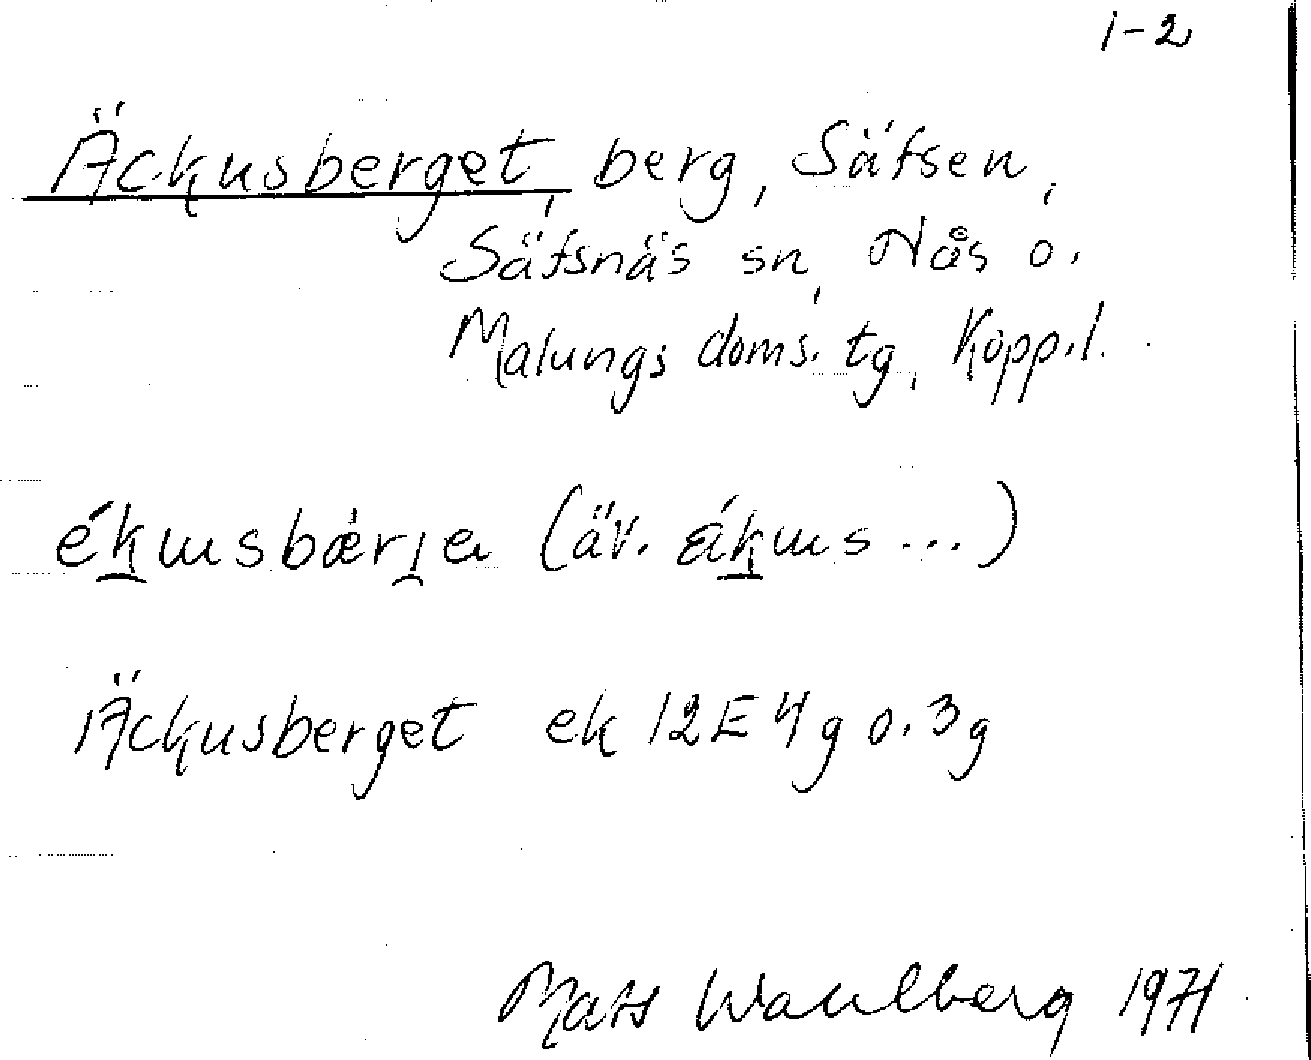 1-2
Äckusberget, berg, Säfsen,
Säfsnäs sn, Nås o.
Malungs doms. tg, Kopp.l.
ékɯsbærjɐ (äv. ǽkɯs ...)
Äckusberget ek 12E 4g o. 3g
Mats Wahlberg 1971